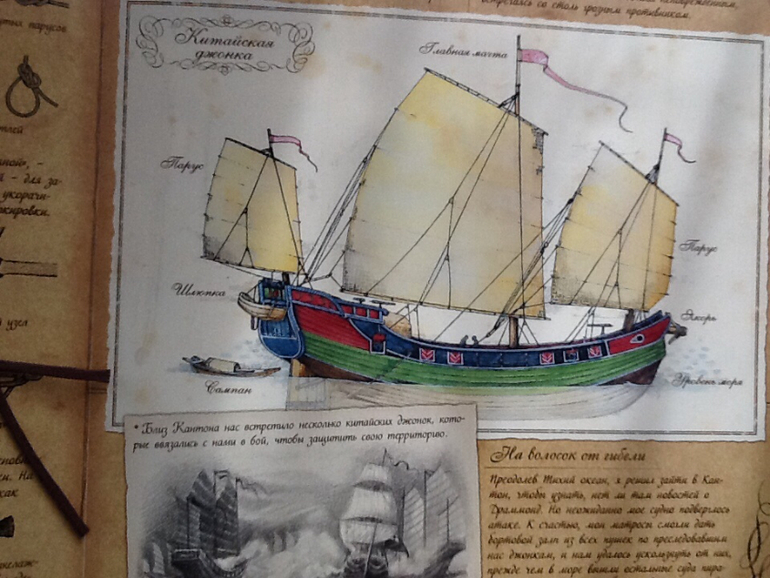 встречалась со столь грозным противником.
Китайская
джонка
Главная мачта
Парус
Парус
Шлюпка
Якорь
Сампан
Уровень моря
тых парусов
- для за-
укорачи-
узел
* Близ Кантона нас встретило несколько китайских джонок, кото-
рые ввязались с нами в бой, чтобы защитить свою территорию.
На волосок от гибели
Преодолев Тихий океан, я решил зайти в Кан-
тон, чтобы узнать, нет ли там новостей о
Драммонд. Но неожиданно мое судно подверглось
атаке. К счастью, мои матросы смогли дать
бортовой залп из всех пушек по преследовавшим
нас джонкам, и нам удалось ускользнуть от них,
прежде чем в море вышли остальные суда пира-